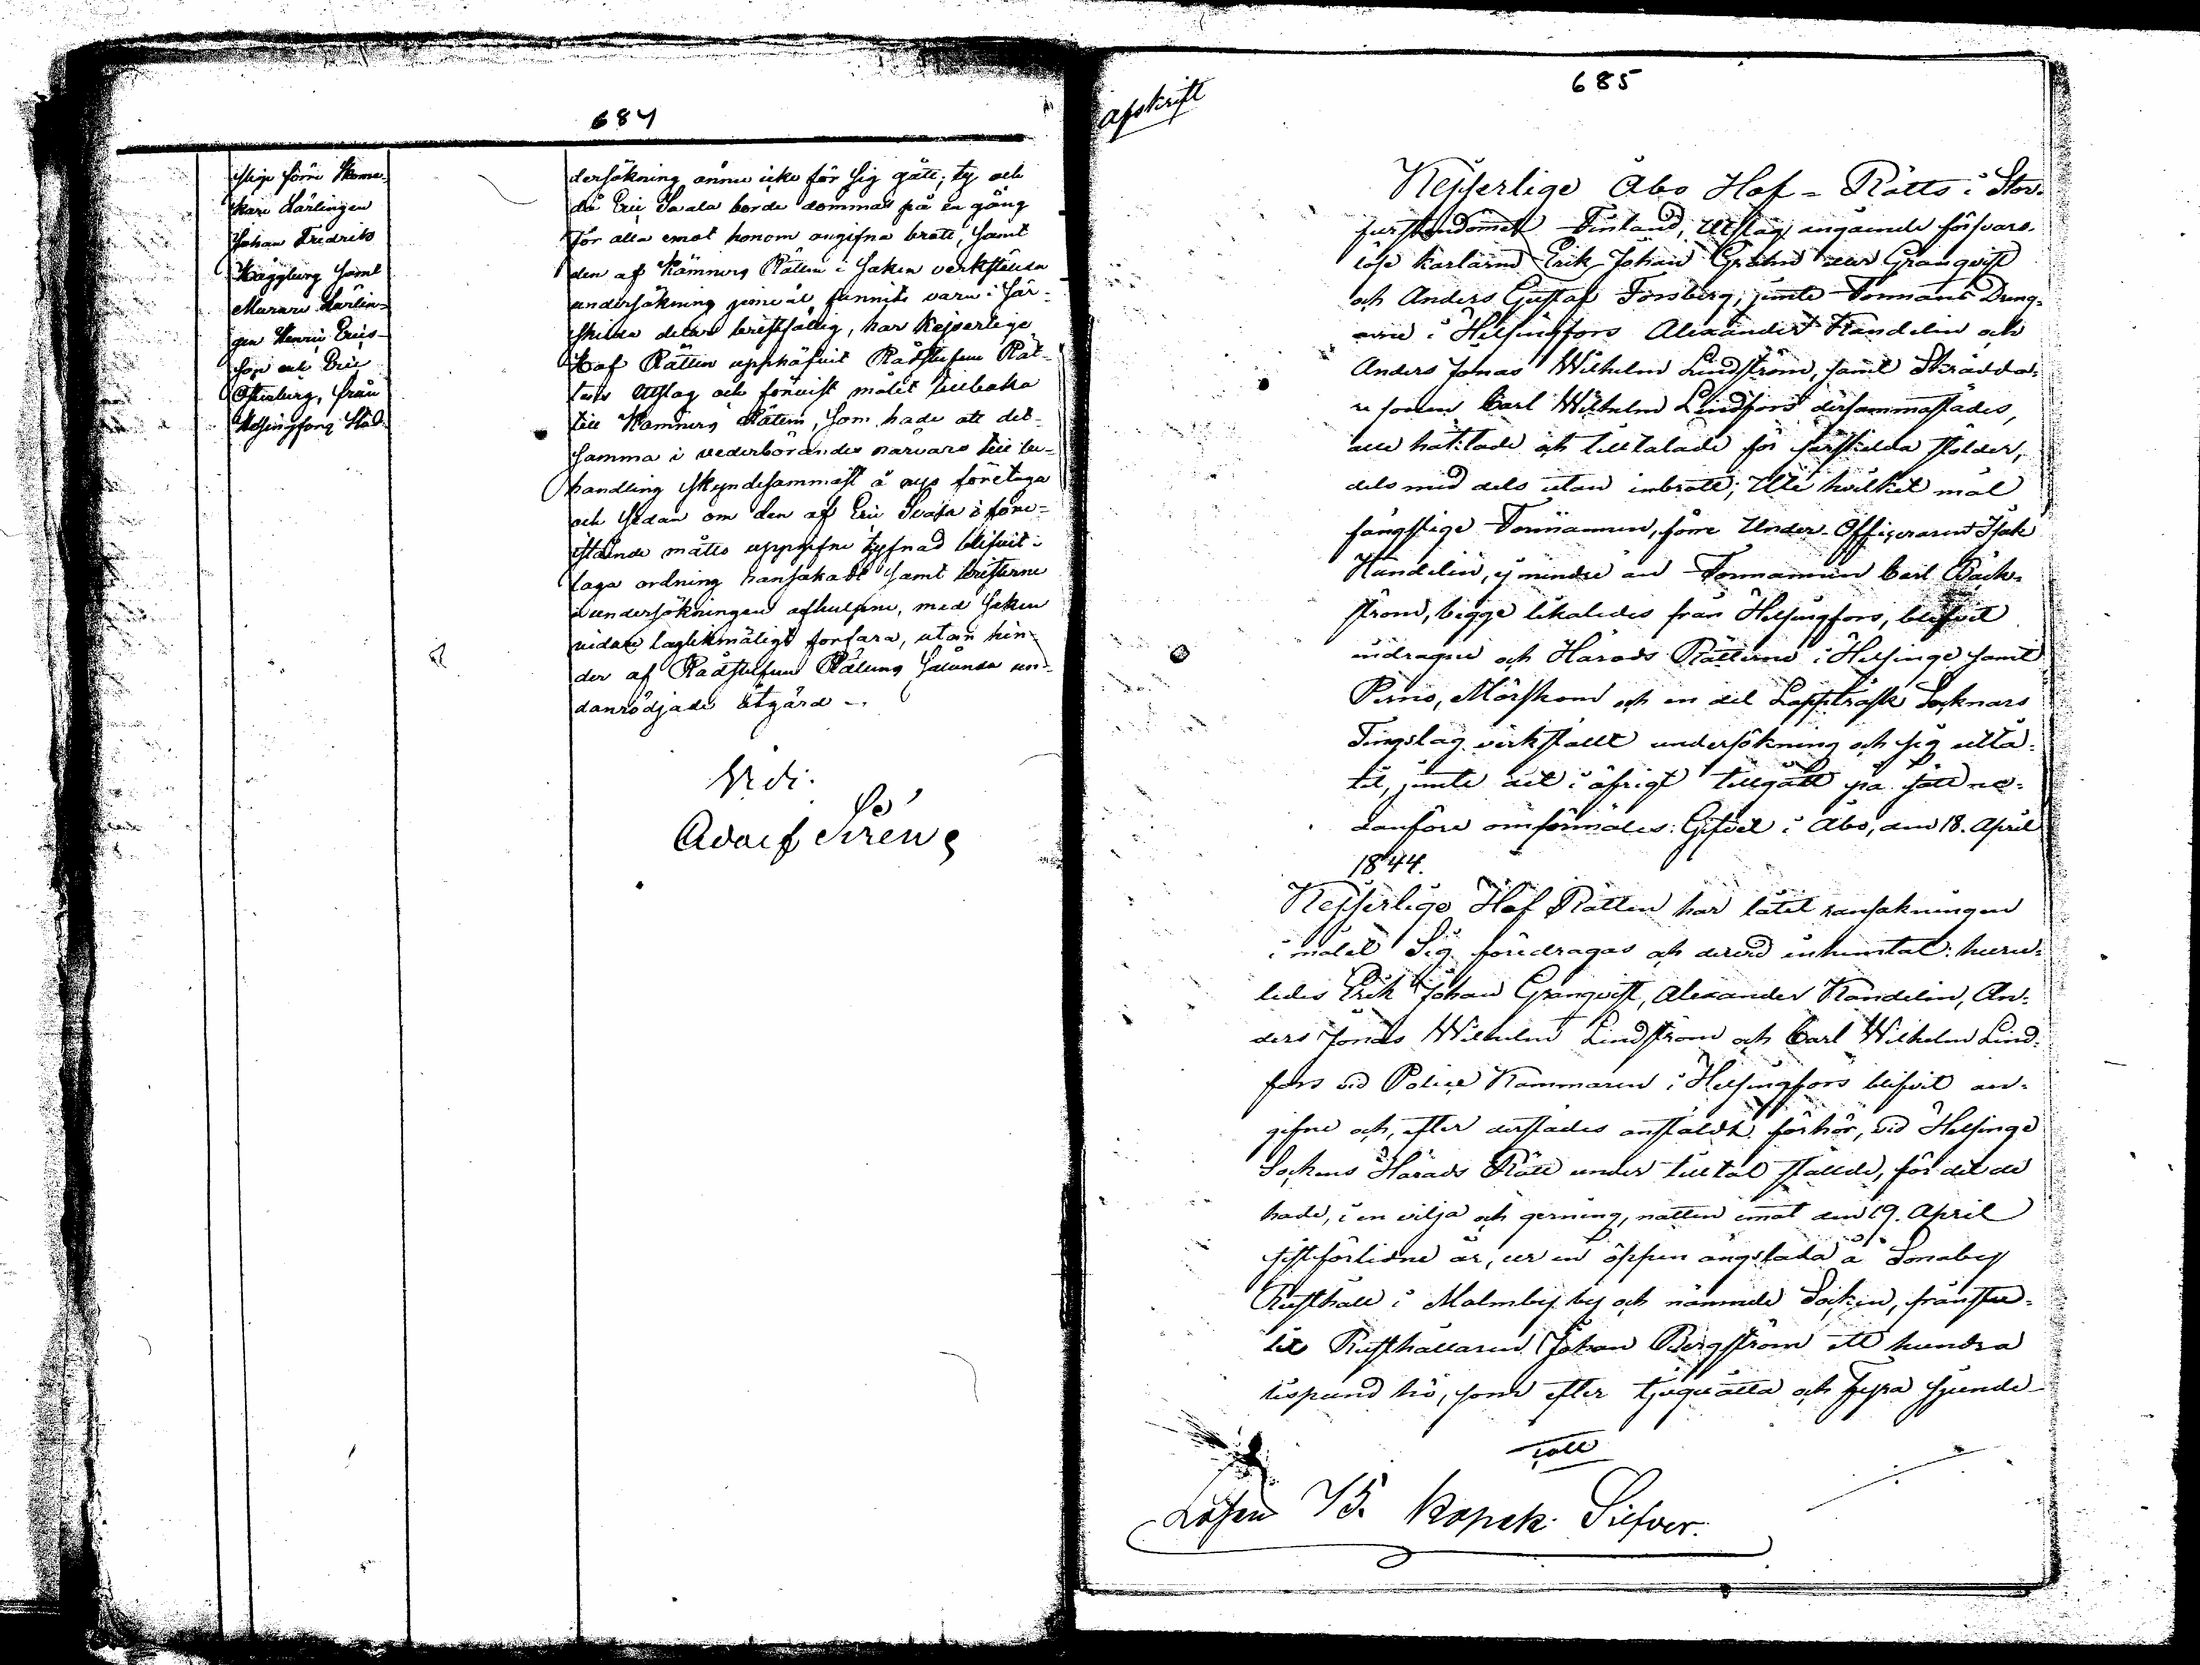 684
ſlige förre Skoma-
kare Lärlingen
Johan Fredrik
Häggberg samt
Murare Lärlin-
gen Henric Erics-
son och Eric
Österberg, från
Helsingfors Stad.
dersökning ännu icke för sig gått; ty och
då Eric Svala borde dömmas på en gång
för alla emot honom angifna brott, samt
den af Kämners Rätten i saken verkstälda
undersökning jemväl funnits vara i sär-
skilda delar bristfällig, har Kejserlige
Hof Rätten upphäfvit Rådstufvu Rät-
tens Utslag och förvist målet tillbaka
till Kämners Rätten, som hade att det-
samma i vederbörandes närvaro till be-
handling skyndesammast å nyo företaga
och sedan om den af Eric Svala i före-
stående måtto uppgifne tjufnad blifvit i
laga ordning ransakadt samt bristerne
i undersökningen afhulpne, med saken
vidare laglikmätigt förfara, utan hin-
der af Rådstufvu Rättens sålunda un-
danrödjade åtgärd.
Vidi.
Adolf Sirén
afskrift
685
Kejserlige Åbo Hof-Rätts i Stor-
furstendömet Finland, Utslag angående försvars-
löse karlarne Erik Johan Grahn eller Granqvist
och Anders Gustaf Forsberg, jemte Formans Dräng-
arne i Helsingfors Alexander Kandelin och
Anders Jonas Wilhelm Lindström, samt Skrädda-
re sonen Carl Wilhelm Lindfors dersammastädes,
alle häktade och tilltalade för särskilda stölder,
dels med dels utan inbrott; Uti hvilket mål
fängslige Formannen, förre Under-Officeraren Isak
Kandelin, ej mindre än Formannen Carl Bäck-
ström, begge likaledes från Helsingfors, blifvit
indragne och Härads Rätterne i Helsinge samt
Perno, Mörskom och en del Lappträsk Socknars
Tingslag verkställt undersökning och sig utlå-
tit, jemte det i öfrigt tillgått på sätt ne-
danföre omförmäles: Gifvet i Åbo, den 18. April
1844.
Kejserlige Hof Rätten har låtit ransakningen
i målet Sig föredragas och deraf inhemtat: huru-
ledes Erik Johan Granqvist, Alexander Kandelin, An-
ders Jonas Wilhelm Lindström och Carl Wilhelm Lind-
fors vid Police Kammaren i Helsingfors blifvit an-
gifne och, efter derstädes anstäldt förhör, vid Helsinge
Sockens Härads Rätt under tilltal ställde, för det de
hade, i en vilja och gerning, natten emot den 19. April
sistförlidne år, ur en öppen ängslada å Sonaby
Rusthåll i Malmby by och nämnde Socken, frånstu-
lit Rusthållaren Johan Bergström ett hundra
lispund hö, som efter tjuguåtta och fyra sjunde-
tall
Lösen 75. Kopek Silfver.